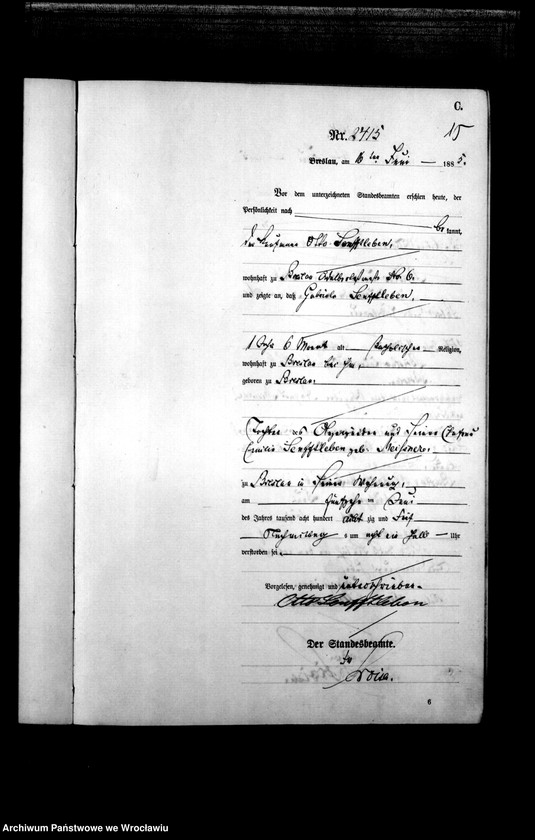 C.
15
Nr. 2715
Breslau, am 16 ten Juni 1885.
Vor dem unterzeichneten Standesbeamten erschien heute, der
Persönlichkeit nach
be kannt,
der Kaufmann Otto Senftleben,
wohnhaft zu Breslau No 6.
und zeigte an, daß Gabriele Senftleben,
1 Jahr 6 Monate alt, katholischer Religion,
wohnhaft zu Breslau bei ihm,
geboren zu Breslau
Tochter des Anzeigenden und seiner Ehefrau
Emilie Senftleben geb. Meissner
zu Breslau in seiner Wohnung,
am fünfzehn ten Juni
des Jahres tausend acht hundert achtzig und fünf
Nachmittags um ein halb Uhr
verstorben sei.
Vorgelesen, genehmigt und unterschrieben
Otto Senftleben
Der Standesbeamte.
6
Archiwum Państwowe we Wrocławiu